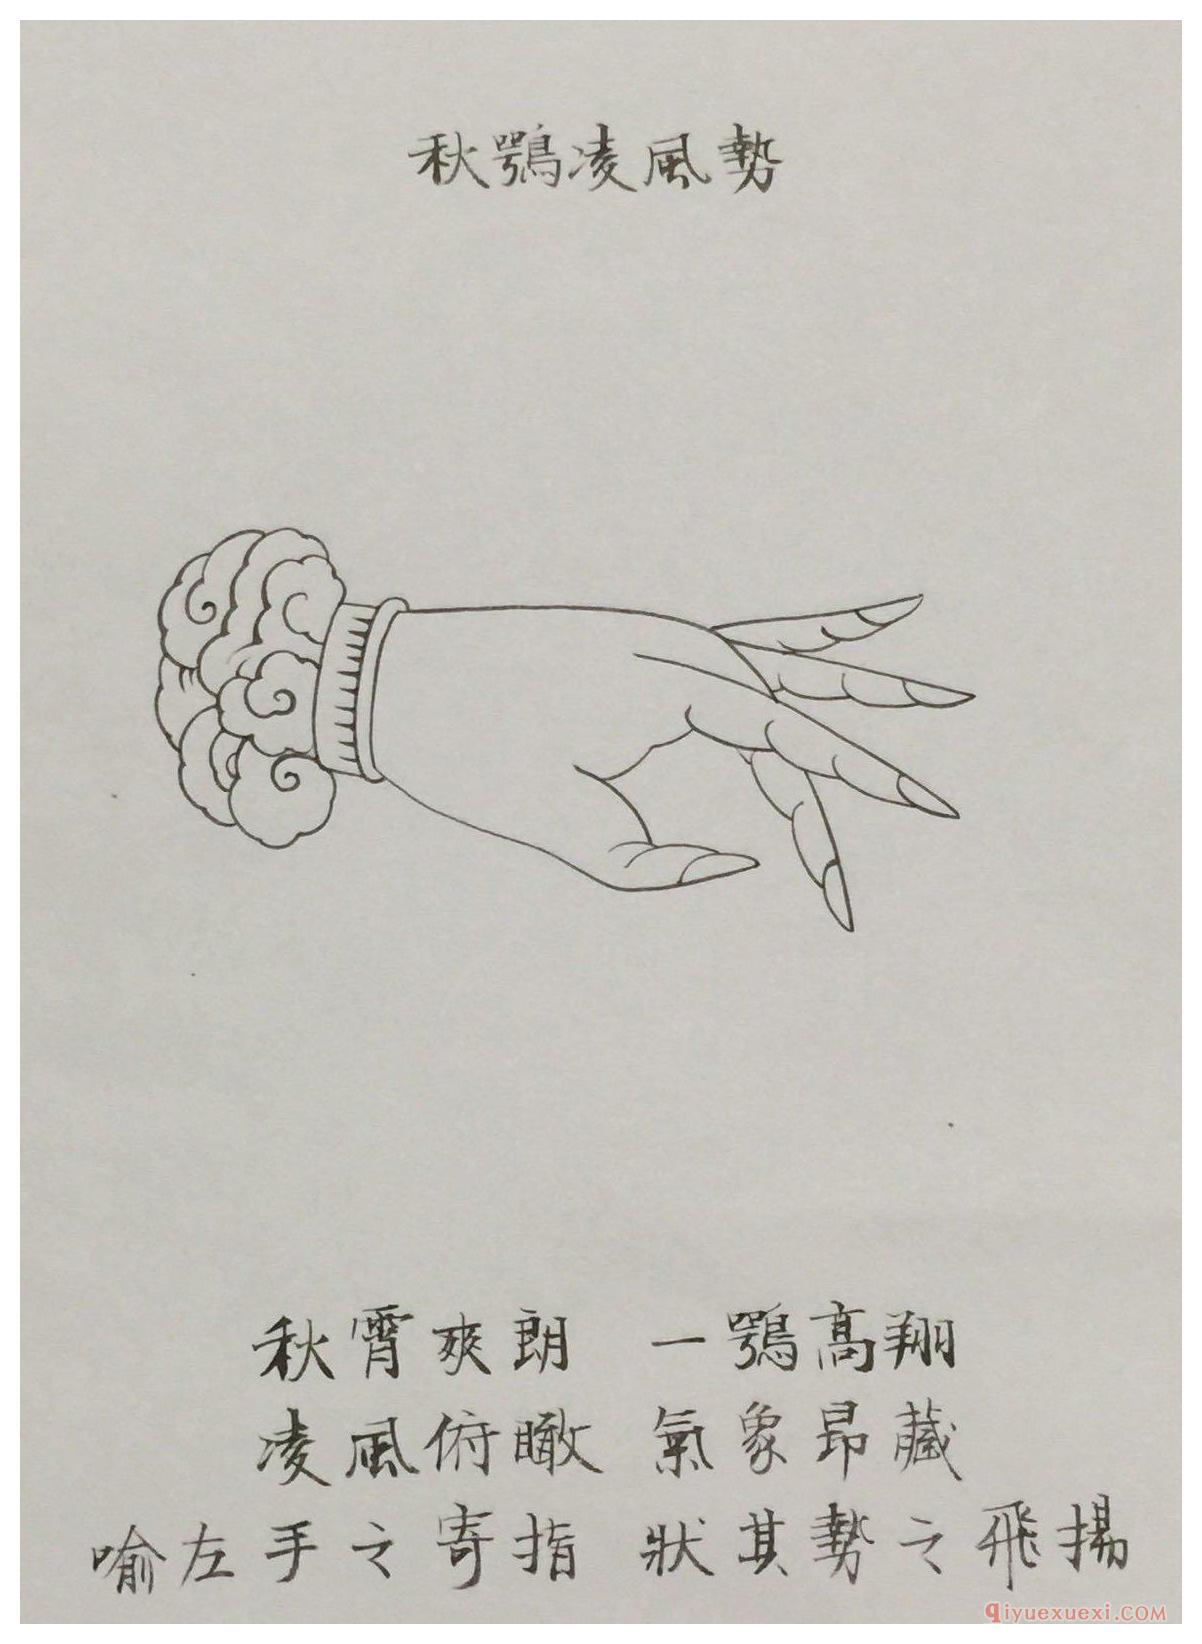 秋鶚凌風勢
秋霄爽朗 一鶚高翔
凌風俯瞰 氣象昂藏
喻左手之寄指 狀其勢之飛揚
qiyuexuexi.COM